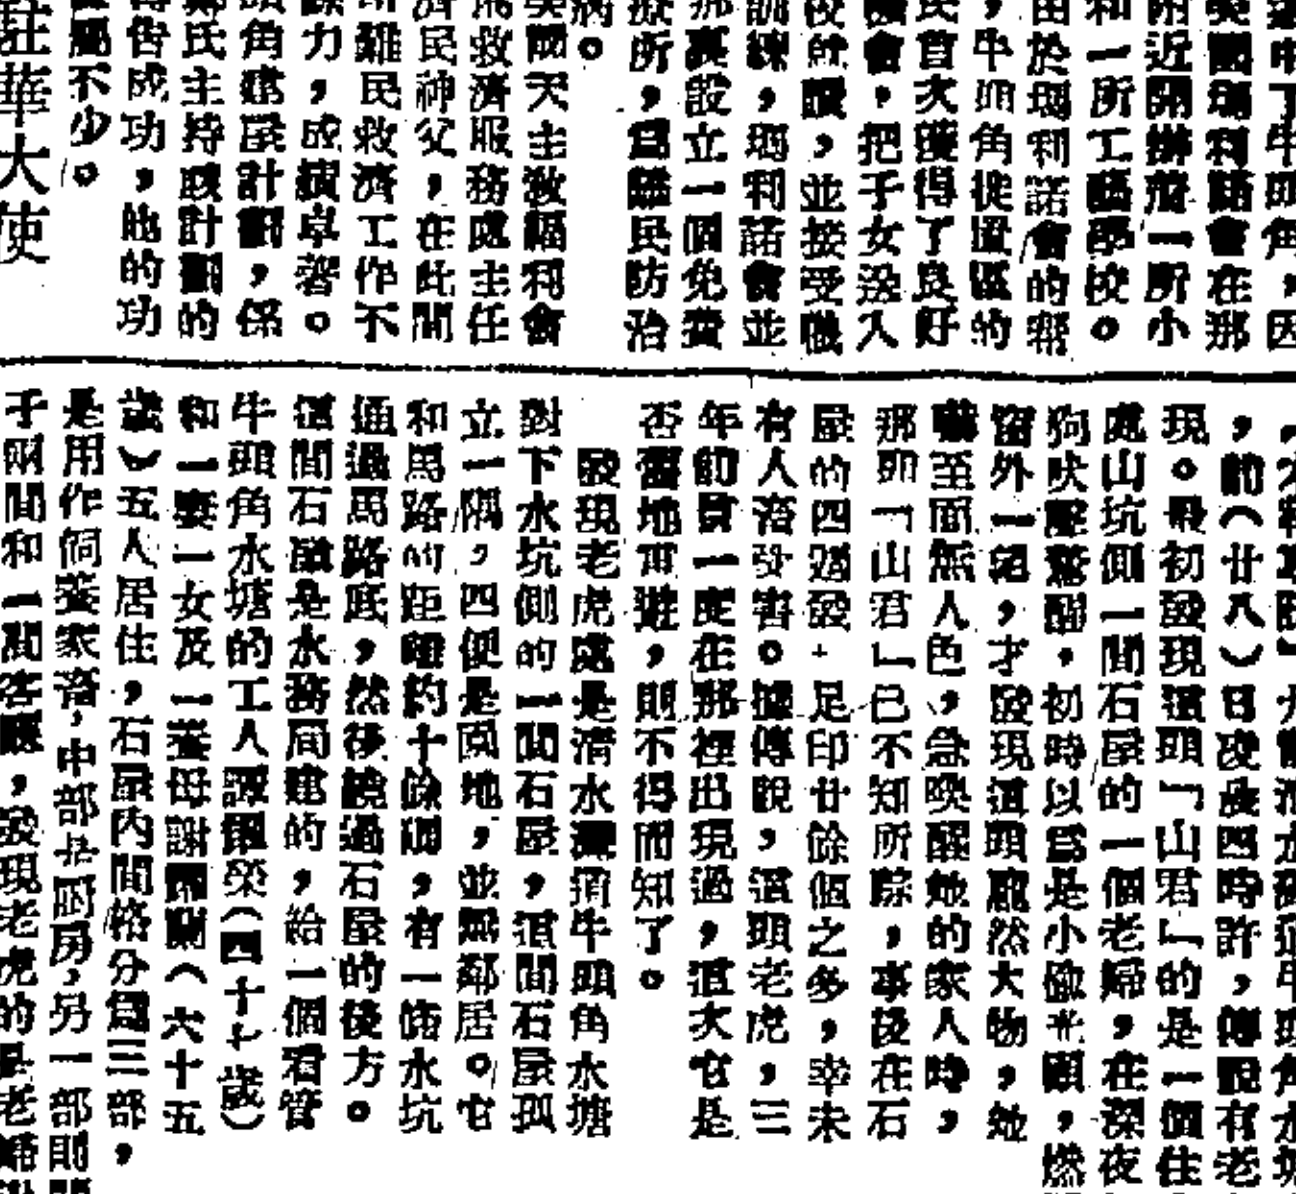 美國瑪利諾會在那
附近開辦著一所小
和一所工藝學校。
由於瑪利諾會的幫
，牛頭角徙置區的
民首次獲得了良好
機會，把子女送入
，並接受職
訓練，瑪利諾會並
那裏設立一個免費
療所，爲難民防治
病。
美國天主教福利會
救濟服務處主任
濟民神父，在此間
難民救濟工作不
餘力，成績卓著。
頭角建屋計劃，係
鄭氏主持該計劃的
告成功，他的功
不少。
駐華大使
，前（廿八）日凌晨四時許，傳說有老
現。最初發現這頭「山君」的是一個住
處山坑側一間石屋的一個老婦，在深夜
狗吠聲驚醒，初時以爲是小偷光顧，燃
窗外一望，才發現這頭龐然大物，她
嚇至面無人色，急喚醒她的家人時，
那頭「山君」已不知所踪，事後在石
屋的四週發現足印廿餘個之多，幸未
有人畜受害。據傳說，這頭老虎，三
年前曾一度在那裡出現過，這次它是
否舊地重遊，則不得而知了。
發現老虎處是清水灣道牛頭角水塘
對下水坑側的一間石屋，這間石屋孤
立一隅，四便是園地，並無鄰居。它
和馬路的距離約十餘碼，有一條水坑
通過馬路底，然後繞過石屋的後方。
這間石屋是水務局建的，給一個看管
牛頭角水塘的工人譚
榮（四十七歲）
和一妻一女及一養母謝
（六十五
歲）五人居住，石屋內間格分爲三部，
是用作飼養家畜，中部是厨房，另一部則
子兩間和一間客廳，發現老虎的是老婦